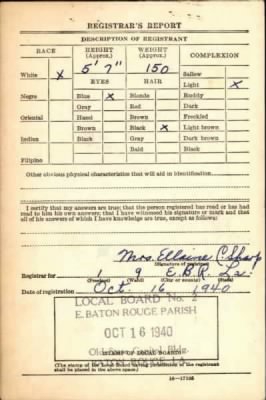 REGISTRAR'S REPORT
DESCRIPTION OF REGISTRANT
RACE HEIGHT (Approx.) WEIGHT (Approx.) COMPLEXION
5' 7" 150 Sallow
White X EYES HAIR Light X
Negro Blue X Blonde Ruddy
Gray Red Dark
Oriental Hazel Brown Freckled
Brown Black X Light brown
Indian Black Gray Dark brown
Bald Black
Filipino
Other obvious physical characteristics that will aid in identification
I certify that my answers are true; that the person registered has read or has had
read to him his own answers; that I have witnessed his signature or mark and that
all of his answers of which I have knowledge are true, except as follows:
Mrs. Ellaine C. Sharp
(Signature of registrar)
Registrar for 1 9 E.B.R. La.
(Precinct) (Ward) (State)
Date of registration Oct. 16 1940
LOCAL BOARD No. 2
E. BATON ROUGE PARISH
OCT 16 1940
Capitol Bldg.
(STAMP OF LOCAL BOARD)
BATON ROUGE, LA.
(The stamp of the Local Board having jurisdiction of the registrant
shall be placed in the above space.)